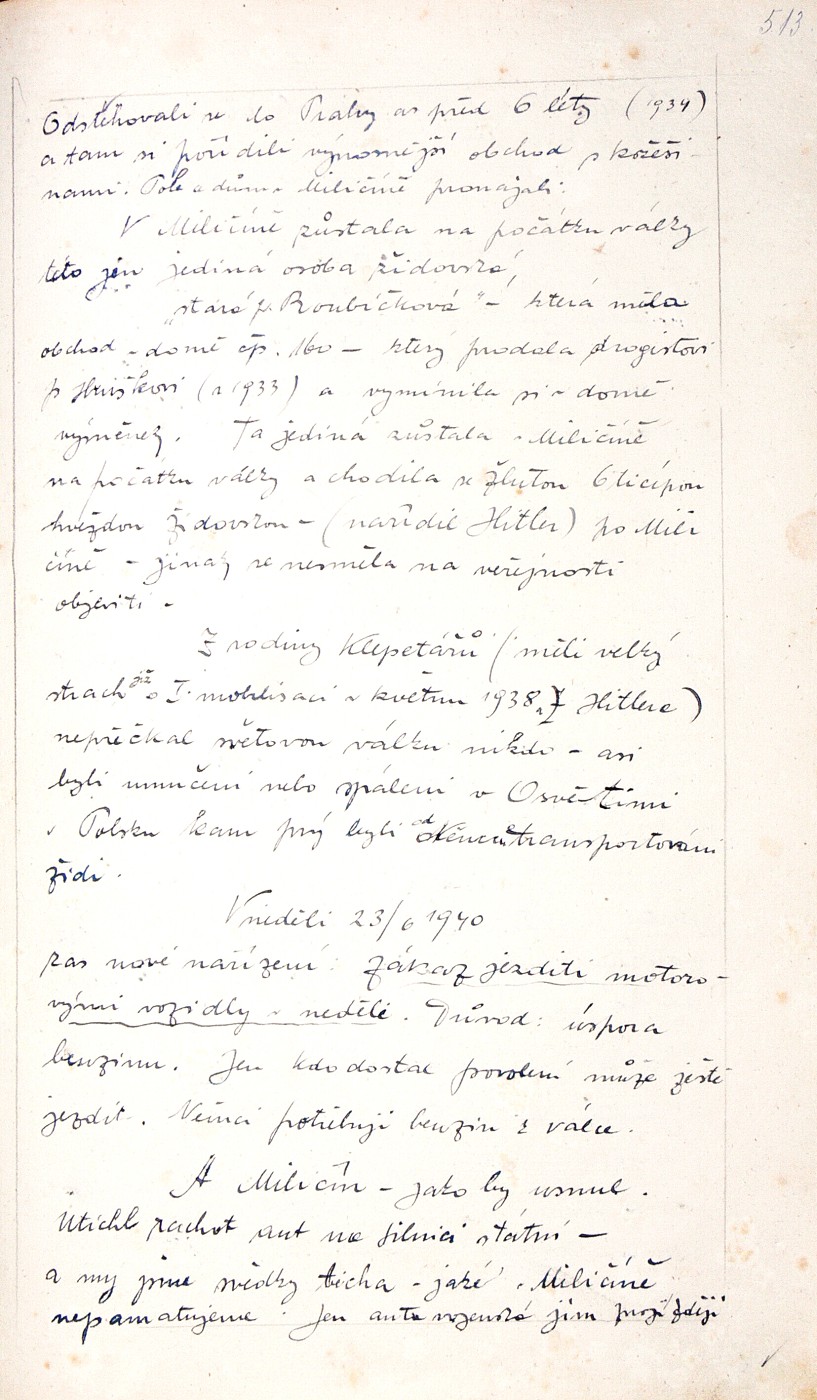 513
Odstěhovali se do Prahy as před 6 léty (1934)
a tam si pořídili výnosnější obchod s kožeši-
nami. Pole a dům v Miličíně pronajali.
V Miličíně zůstala na počátku války
této jen jediná osoba židovská
„stará p. Roubíčková“ – která měla
obchod v domě čp. 160 – který prodala drogistovi
p Hruškovi (r 1933) a vymínila si v domě
výměnek. Ta jediná zůstala v Miličíně
na počátku války a chodila se žlutou 6ticípou
hvězdou židovskou – (nařídil Hitler) po Mili
číně – jinak se nesměla na veřejnosti
objeviti –
Z rodiny Klepetářů (měli velký
strach již o I. mobilisaci v květnu 1938 z Hitlera)
nepřečkal světovou válku nikdo – asi
byli umučeni nebo spáleni v Osvětimi
v Polsku kam prý byli od Němců transportováni
židi.
V neděli 23/6 1940
zas nové nařízení: Zákaz jezditi motoro-
vými vozidly v neděli. Důvod: úspora
benzinu. Jen kdo dostal povolení může ještě
jezdit. Němci potřebují benzin k válce.
A Miličín – jako by usnul.
Utichl rachot aut na silnici státní –
a my jsme svědky ticha – jaké v Miličíně
nepamatujeme. Jen auta vojenská jím projíždějí